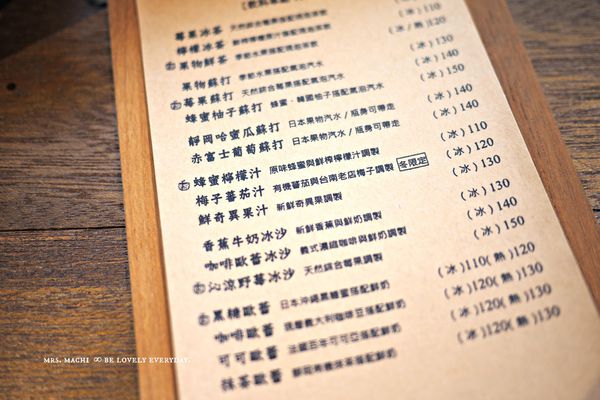 莓果冰茶 天然綜合莓果搭配現泡茶飲 (冰)110
檸檬冰茶 新鮮檸檬原汁搭配現泡茶飲 (冰/熱)120
果物鮮茶 季節水果搭配現泡茶飲 (冰)130
果物蘇打 季節水果搭配氣泡汽水 (冰)140
莓果蘇打 天然綜合莓果搭配氣泡汽水 (冰)150
蜂蜜柚子蘇打 蜂蜜・韓國柚子搭配氣泡汽水 (冰)140
靜岡哈蜜瓜蘇打 日本果物汽水/瓶身可帶走 (冰)140
赤富士葡萄蘇打 日本果物汽水/瓶身可帶走
蜂蜜檸檬汁 原味蜂蜜與鮮榨檸檬汁調製 (冰)110
梅子蕃茄汁 有機蕃茄與台南老店梅子調製 冬限定 (冰)120
鮮奇異果汁 新鮮奇異果調製 (冰)130
香蕉牛奶冰沙 新鮮香蕉與鮮奶調製 (冰)130
咖啡歐蕾冰沙 義式濃縮咖啡與鮮奶調製 (冰)140
沁涼野莓冰沙 天然綜合莓果調製 (冰)150
黑糖歐蕾 日本沖繩黑糖蜜搭配鮮奶 (冰)110(熱)120
咖啡歐蕾 義大利咖啡豆搭配鮮奶 (冰)120(熱)130
可可歐蕾 法國百年可可亞搭配鮮奶 (冰)120(熱)130
抹茶歐蕾 靜岡抹茶搭配鮮奶 (冰)120(熱)130
MRS. MACHI ∞ BE LOVELY EVERYDAY.